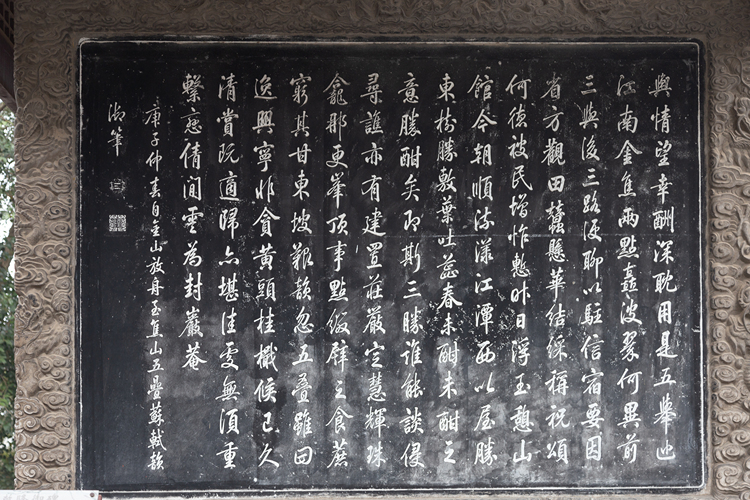 輿情望幸酬深耽用是五舉巡
江南金焦兩點矗波翠何異前
三與後三路便聊以駐信宿要因
省方觀田蠶懸華結綵稱祝頌
何德被民增怍慙昨日浮玉憩山
館今朝順流漾江潭西以屋勝
東樹勝敷葉吐蕊春未酣未酣之
意勝酣矣即斯三勝誰能談侵
尋譙亦有建置莊嚴定慧輝珠
龕那更峯頂事點綴辟之食蔗
窮其甘東坡艱韻忽五疊雖曰
逸興寧非貪黃頭桂檝候已久
清賞既適歸亦堪佳處無須重
繫戀倩閒雲為封巖菴
庚子仲春自金山放舟至焦山五疊蘇軾韻
御筆